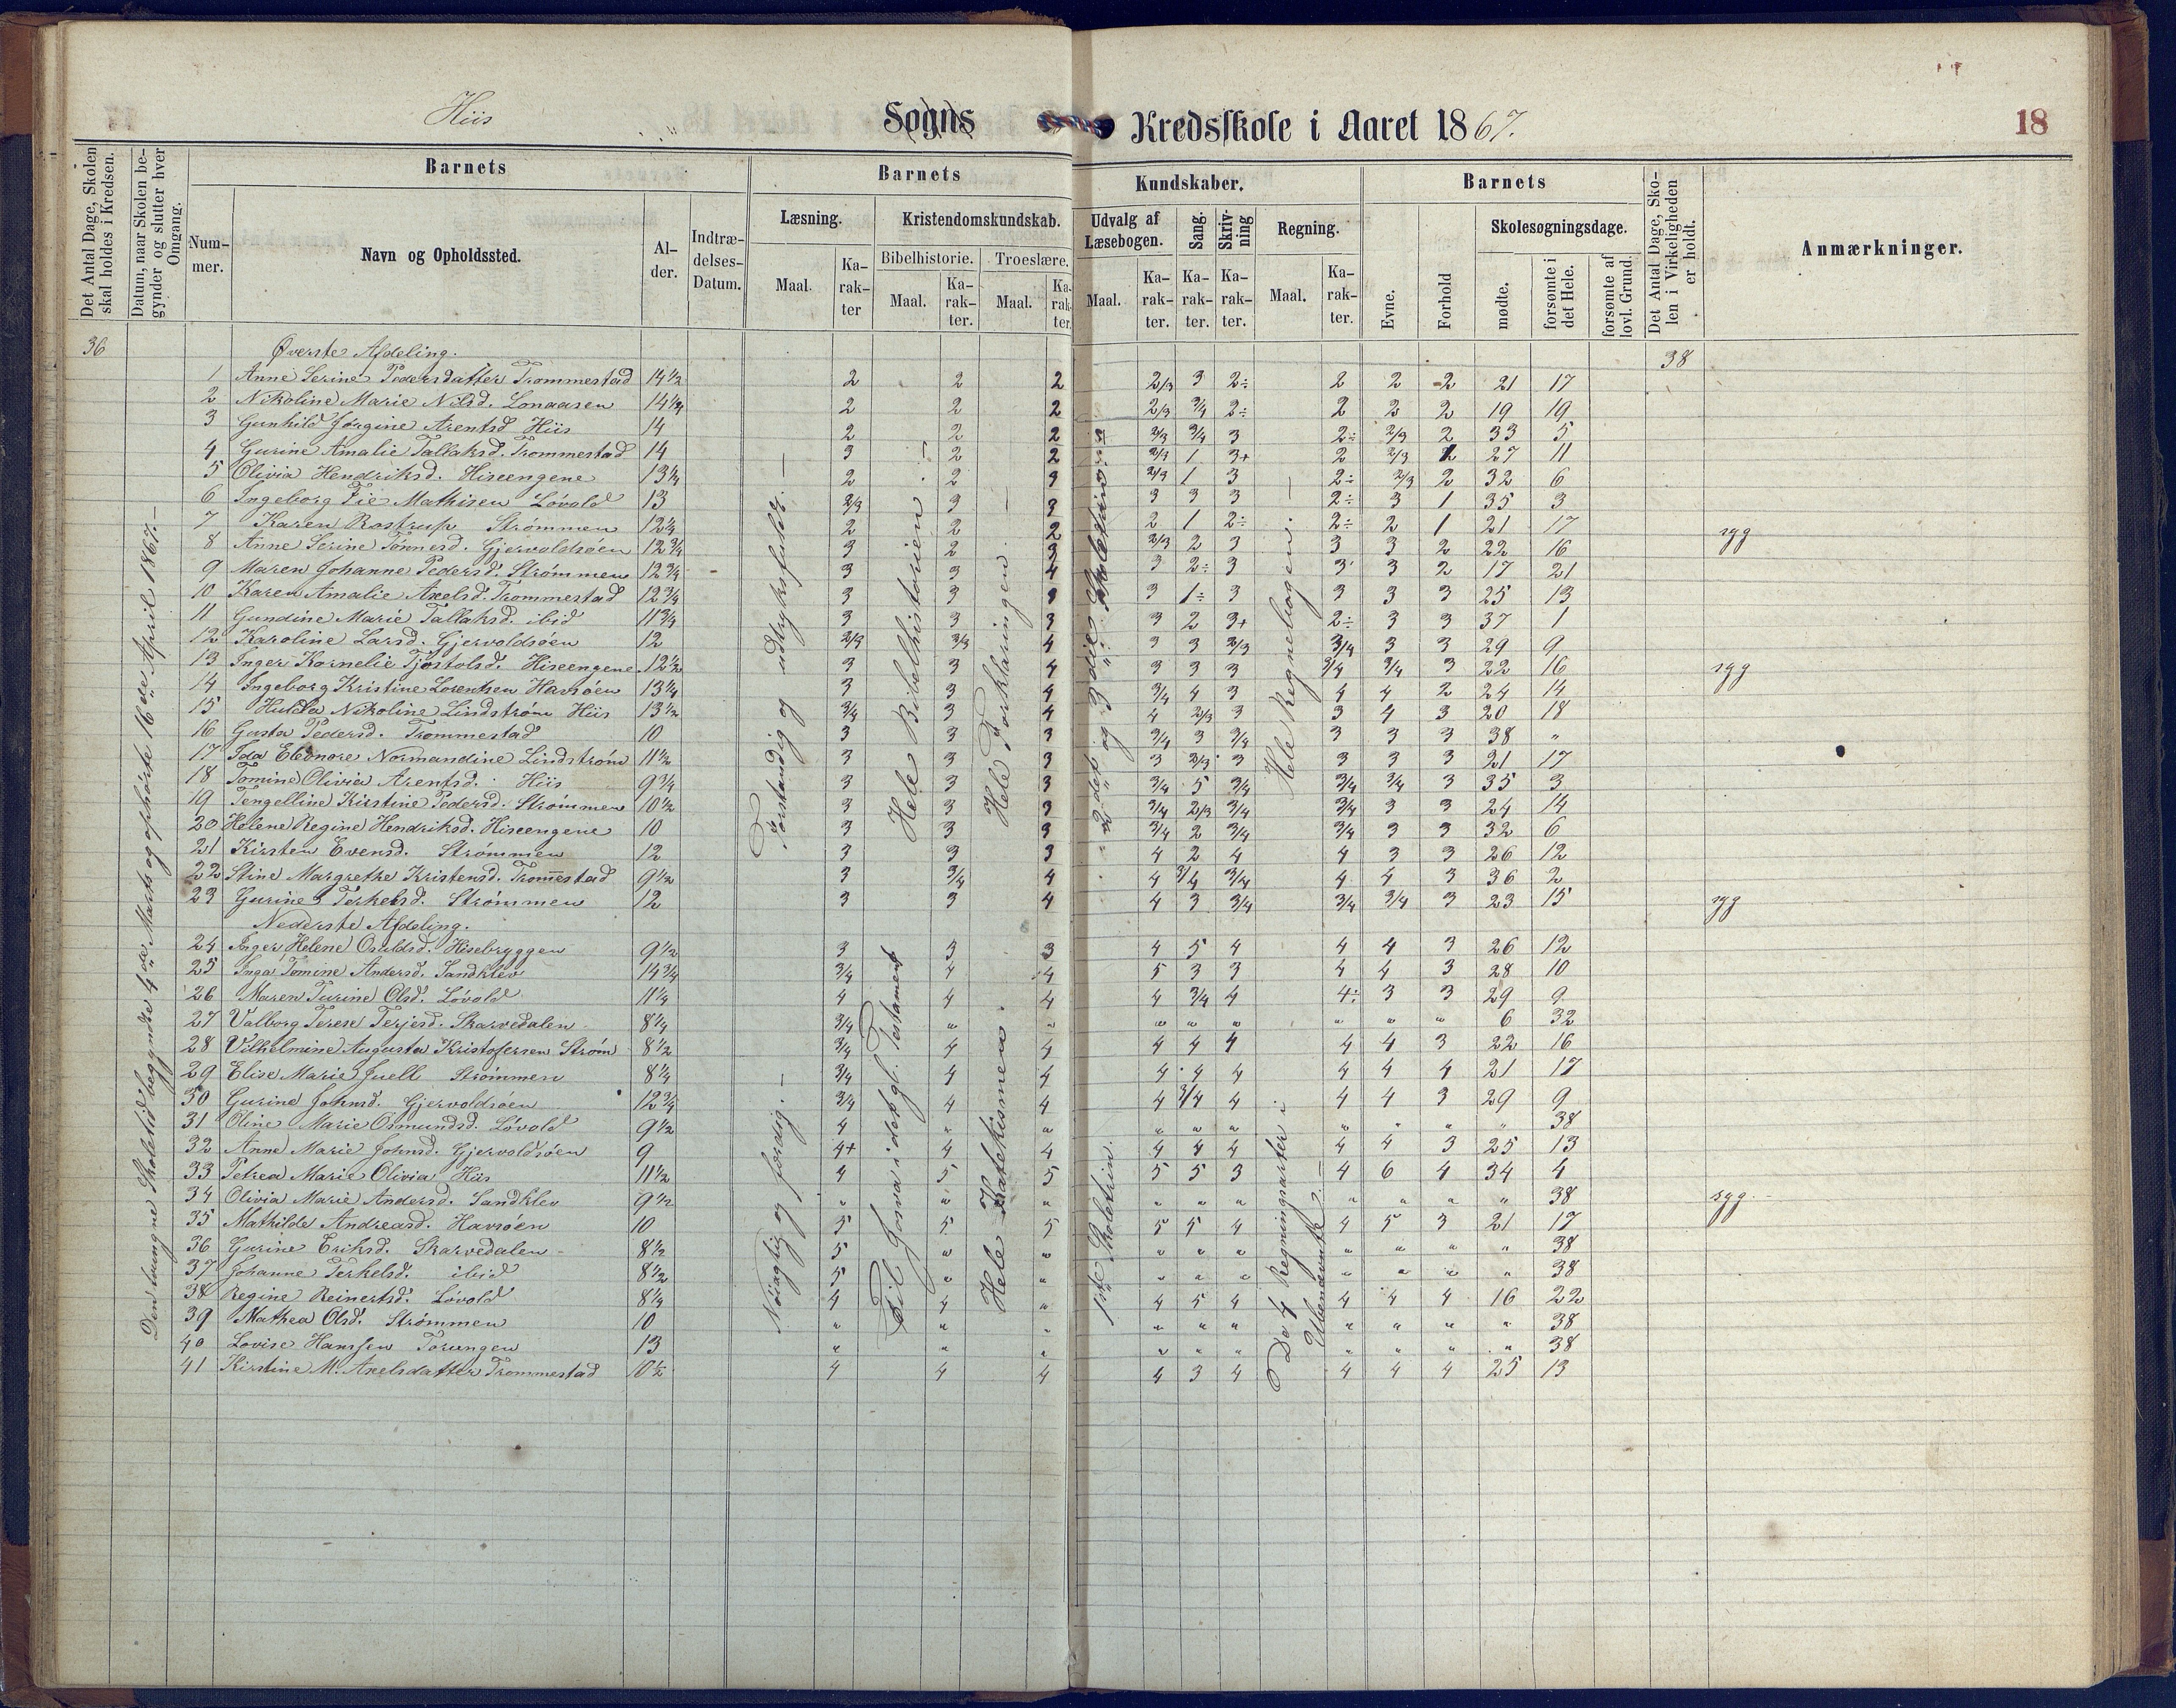 Hiis Sogns Kredsskole i Aaret 1867. 18
Det Antal Dage, Skolen skal holdes i Kredsen.
Datum, naar Skolen begynder og slutter hver Omgang.
Barnets
Barnets Kundskaber.
Barnets
Det Antal Dage, Skolen i Virkeligheden er holdt.
Anmærkninger.
Num-mer.
Navn og Opholdssted.
Al-der.
Indtræ-delses-Datum.
Læsning.
Kristendomskundskab.
Udvalg af Læsebogen.
Sang.
Skriv-ning
Regning.
Evne.
Forhold
Skolesøgningsdage.
Bibelhistorie.
Troeslære.
Maal. Ka-rak-ter
Maal. Ka-rak-ter.
Maal. Ka-rak-ter.
Maal. Ka-rak-ter.
Ka-rak-ter.
Ka-rak-ter.
Maal. Ka-rak-ter.
mødte.
forsømte i det Hele.
forsømte af lovl. Grund.
36 Øverste Afdeling. 38
1 Anne Serine Pedersdatter Trommestad 14 1/2 2 2 2 2/3 3 2÷ 2 2 2 21 17
2 Nikoline Marie Nilsd. Lonaasen 14 1/4 2 2 2 2/3 3/4 2÷ 2 2 2 19 19
3 Gunhild Jørgine Arentsd Hiis 14 2 2 2 2/3 3/4 3 2÷ 2/3 2 33 5
4 Gurine Amalie Tallaksd. Trommestad 14 3 2 2 2/3 1 3+ 2 2/3 2 27 11
5 Olivia Hendriksd. Hiseengene 13 1/4 2 2 3 2/3 1 3 2÷ 2/3 2 32 6
6 Ingeborg Fie Mathisen Løvold 13 2/3 3 3 3 3 3 2÷ 3 1 35 3
7 Karen Rostrup Strømmen 12 1/2 2 2 2 2 1 2÷ 2÷ 2 1 21 17 syg
8 Anne Serine Tønnesd. Gjervoldsøen 12 3/4 3 2 3 2/3 2 3 3 3 2 22 16
9 Maren Johanne Pedersd. Strømmen 12 3/4 3 3 4 3 2÷ 3 3 3 2 17 21
10 Karen Amalie Axelsd. Trommestad 12 3/4 3 3 3 3 1÷ 3 3 3 3 25 13
11 Gundine Marie Tallaksd. ibid 11 3/4 3 3 3 3 2 3+ 2÷ 3 3 37 1
12 Karoline Larsd. Gjervoldsøen 12 2/3 3/3 4 3 3 2/3 3/4 3 3 29 9
13 Inger Kornelie Tjøstolsd. Hiseengene 12 1/2 3 3 4 3 3 3 3/4 3/4 3 22 16 syg
14 Ingeborg Kristine Lorentsen Havsøen 13 1/4 3 3 4 3/4 4 3 4 4 2 24 14
15 Hulda Nikoline Lindstrøm Hiis 13 1/2 3/4 3 4 4 2/3 3 3 4 3 20 18
16 Gusta Pedersd. Trommestad 10 3 3 3 3/4 3 3/4 3 3 3 38 "
17 Ida Eleonore Normandine Lindstrøm 11 1/2 3 3 3 3 2/3 3 3 3 3 21 17
18 Tomine Olivia Arentsd. Hiis 9 3/4 3 3 3 3/4 5 3/4 3/4 3/4 3 35 3
19 Tengelline Kirstine Pedersd. Strømmen 10 1/2 3 3 3 3/4 2/3 3/4 3/4 3 3 24 14
20 Helene Regine Hendriksd. Hiseengene 10 3 3 3 3/4 2 3/4 3/4 3 3 32 6
21 Kirsten Evensd. Strømmen 12 3 3 3 4 2 4 4 3 3 26 12
22 Stine Margrethe Kristensd. Trommestad 9 1/2 3 3/4 4 4 3/4 3/4 4 4 3 36 2
23 Gurine Terkelsd. Strømmen 12 3 3 4 4 3 3/4 3/4 3/4 3 23 15 syg
Nederste Afdeling.
24 Inger Helene Osuldsd. Hisebryggen 9 1/2 3 3 3 4 5 4 4 4 3 26 12
25 Inga Tomine Andersd. Sandklev 14 3/4 3/4 4 4 5 3 3 4 4 3 28 10
26 Maren Turine Olsd. Løvold 11 1/4 4 4 4 4 3/4 4 4÷ 3 3 29 9
27 Valborg Terese Terjesd. Skarvedalen 8 1/4 3/4 " " " " " " " " 6 32
28 Vilhelmine Augusta Kristofersen Strøm 8 1/2 3/4 4 4 4 4 4 4 4 3 22 16
29 Elise Marie Juell Strømmen 8 1/4 3/4 4 4 4 4 4 4 4 4 21 17
30 Gurine Johnsd. Gjervoldsøen 12 3/4 3/4 4 4 4 3/4 4 4 4 3 29 9
31 Oline Marie Osmundsd. Løvold 9 1/2 4 " " " " " " " " " 38
32 Anne Marie Johnsd. Gjervoldsøen 9 4+ 4 4 4 4 4 4 4 3 25 13
33 Petrea Marie Olivia Hiis 11 1/2 4 5 5 5 5 3 4 6 4 34 4
34 Olivia Marie Andersd. Sandklev 9 1/2 " " " " " " " " " " 38 syg.
35 Mathilde Andreasd. Havsøen 10 5 5 5 5 5 4 4 5 3 21 17
36 Gurine Eriksd. Skarvedalen 8 1/2 5 " " " " " " " " " 38
37 Johanne Terkelsd. ibid 8 1/2 5 " " " " " " " " " 38
38 Regine Reinertsd. Løvold 8 1/4 4 4 " 4 5 4 4 4 4 16 22
39 Mathea Olsd. Strømmen 10 " " " " " " " " " " 38
40 Lovise Hanssen Torungen 13 " " " " " " " " " " 38
41 Kirstine M. Axelsdatter Trommestad 10 1/2 4 4 4 4 3 4 4 4 4 25 13
Den tvungne Skoletid begyndte 4de Marts og ophørte 16de April 1867.
Forstandig og udtryksfuldt.
Hele Bibelhistorien
Hele Forklaringen.
2det og 3die Skoletrin
Hele Regnebogen.
Nøiagtig og færdig.
Til Josva i det gl. Testament
Hele Katekismen.
1ste Skoletrin.
De 4 Regningsarter i Ubenævnte